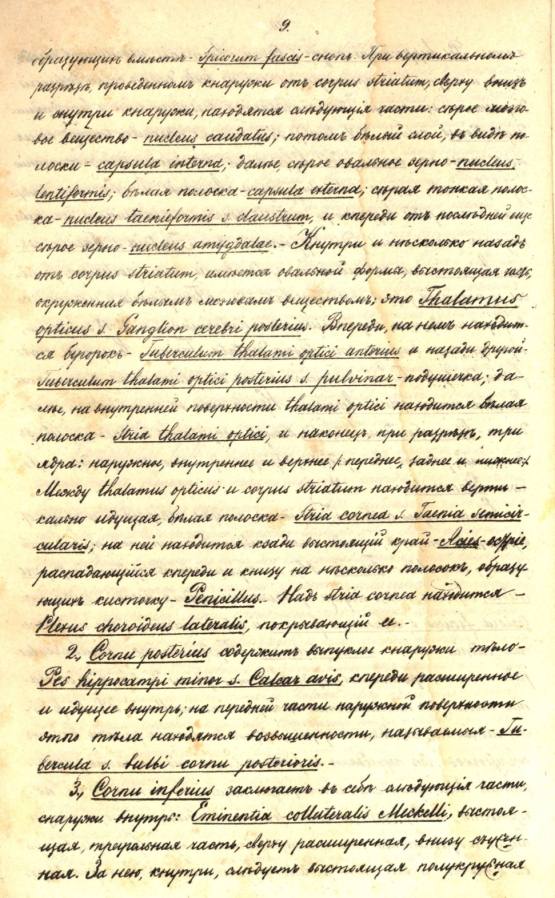 9.
образующихъ вмѣстѣ - Spicorum fascis - снопъ. При вертикальномъ
разрѣзѣ, проведенномъ кнаружи отъ corpus striatum, сверху внизъ
и снутри кнаружи, находятся слѣдующія части: сѣрое мозго-
вое вещество - nucleus caudatus; потомъ бѣлый слой, въ видѣ по-
лоски - capsula interna; далѣе, сѣрое овальное зерно - nucleus
lentiformis; бѣлая полоска - capsula externa; сѣрая тонкая полос-
ка - nucleus taeniformis s. claustrum, и кпереди отъ послѣдней еще
сѣрое зерно - nucleus amygdalae. - Кнутри и нѣсколько назадъ
отъ corpus striatum, имѣется овальной формы, выстоящая часть,
окруженная бѣлымъ мозговымъ веществомъ; это Thalamus
opticus s. Ganglion cerebri posterius. Впереди, на немъ находит-
ся бугорокъ - Tuberculum thalami optici anterius и назади другой -
Tuberculum thalami optici posterius s. pulvinar - подушечка; да-
лѣе, на внутренней поверхности thalami optici находится бѣлая
полоска - stria thalami optici, и наконецъ, при разрѣзѣ, три
ядра: наружное, внутреннее и верхнее / переднее, заднее и нижнее/.
Между thalamus opticus и corpus striatum находится верти-
кально идущая, бѣлая полоска - Stria cornea s. Taenia semicir-
cularis; на ней находится кзади выстоящій край - Acies - остріе,
распадающійся кпереди и книзу на нѣсколько полосокъ, образу-
ющихъ кисточку - Penicillus. - Надъ stria cornea находится -
Plexus choroideus lateralis, покрывающій ее. -
2, Cornu posterius содержитъ выпуклое кнаружи тѣло -
Pes hippocampi minor s. Calcar avis, кпереди расширенное
и идущее внутрь; на передней части наружной поверхности
этого тѣла находятся возвышенности, называемыя - Tu-
bercula s. bulbi cornu posterioris. -
3, Cornu inferius заключаетъ въ себѣ слѣдующія части,
снаружи внутрь: Eminentia collateralis Meckelli, выстоя-
щая, треугольная часть, сверху расширенная, внизу съужен-
ная. За нею, кнутри, слѣдуетъ выстоящая полукруглая